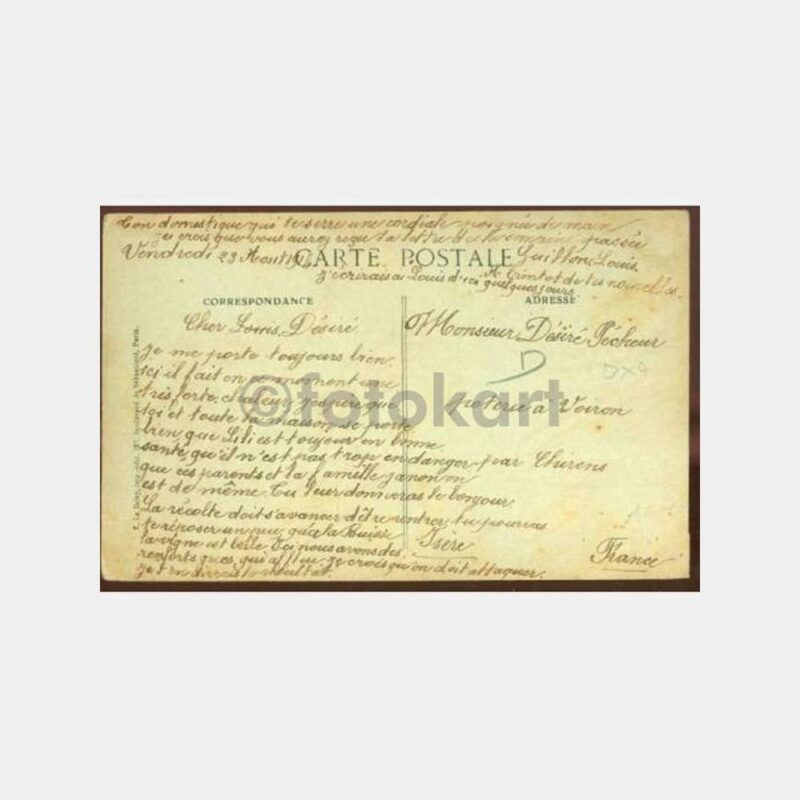 Ton domestique qui te serre une cordiale poignée de main
je crois que vous aurez reçu la lettre de la semaine passée
Vendredi 23 Août
CARTE POSTALE
Guillon Louis
j'écrirais à Louis d'ici quelques jours
CORRESPONDANCE
ADRESSE
Cher Louis Désiré
Monsieur Désiré Pécheur
Je me porte toujours bien
ici il fait en ce moment une
très forte chaleur j'espère que
toi et toute la maison se porte
poterie à Voiron
bien que Lili est toujour en bonne
santé, qu'il n'est pas trop en danger
par Chirens
que ces parents et la famille
est de même. Tu leur donneras le bonjour
La récolte doit s'avancer d'être rentrer, tu pourras
te reposer un peu, qu'à la Buisse
la vigne est belle. Ici nous avons des
Isère
renforts que je crois qu'on doit attaquer.
je résultat.
France
©fotokart